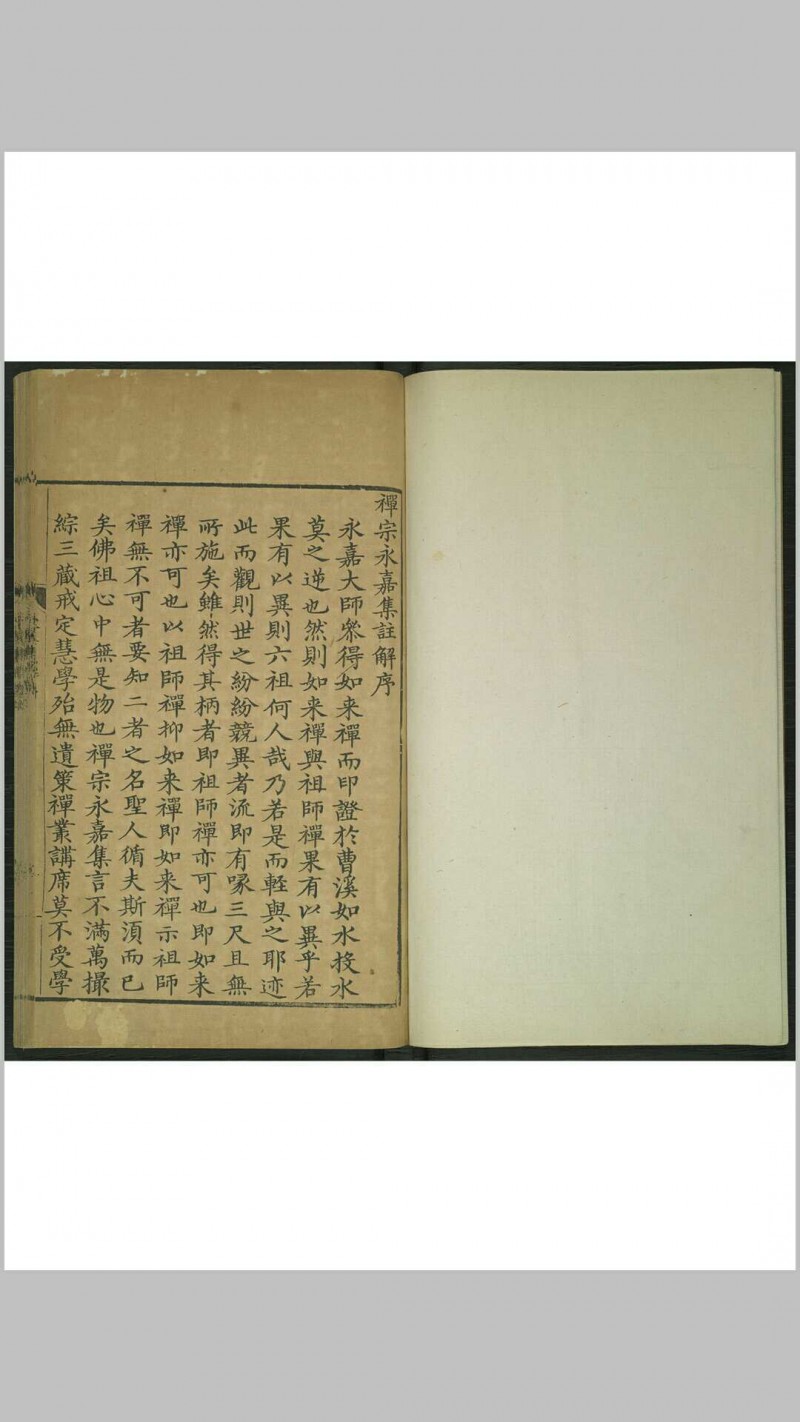 禪宗永嘉集註解序
永嘉大師叅得如来禪而印證於曹溪如水投水
莫之逆也然則如来禪與祖師禪果有以異乎若
果有以異則六祖何人哉乃若是而輕與之耶迹
此而觀則世之紛紛競異者流即有喙三尺且無
所施矣雖然得其柄者即祖師禪亦可也即如来
禪亦可也以祖師禪抑如来禪即如来禪示祖師
禪無不可者要知二者之名聖人循夫斯須而已
矣佛祖心中無是物也禪宗永嘉集言不滿萬撮
綜三藏戒定慧學殆無遺策禪叢講席莫不受學